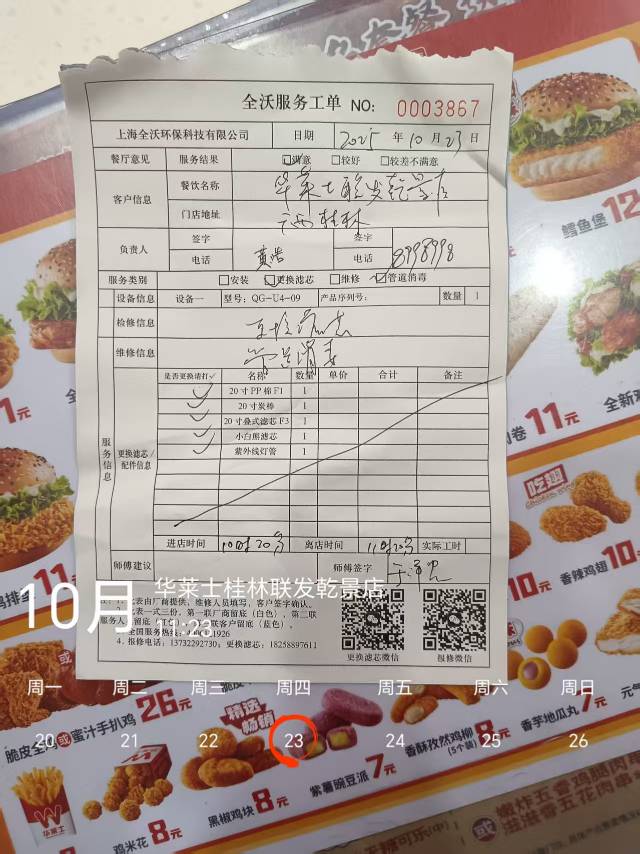 全沃服务工单 NO: 0003867
上海全沃环保科技有限公司 日期 2025 年 10 月 23 日
餐厅意见 服务结果 满意 较好 较差不满意
客户信息 餐饮名称 华莱士联发乾景店
门店地址 广西桂林
负责人 签字 签字
电话 黄浩 电话 8998998
服务类别 安装 更换滤芯 维修 管道消毒
设备信息 设备一 型号: QG-U4-09 产品序列号: 数量 1
检修信息
维修信息 管道消毒
服务信息 更换滤芯/配件信息 是否更换请打✓ 名称 数量 单价 合计 备注
✓ 20寸PP棉F1 1
✓ 20寸炭棒 1
✓ 20寸叠式滤芯F3 1
✓ 小白熊滤芯 1
✓ 紫外线灯管 1
进店时间 10时20分 离店时间 11时20分 实际工时
师傅建议 师傅签字
表由厂商提供、维修人员填写，客户签字确认。
表一式三份，第一联厂商留底（白色）、第二联
服务人 留底 联客户留底（蓝色）。
全国服务热线: 1926
4. 报修电话: 13732292730; 更换滤芯: 18258897611
更换滤芯微信 报修微信
10月 华莱士桂林联发乾景店
11:23
周一 周二 周三 周四 周五 周六 周日
20 21 22 23 24 25 26
鳕鱼堡
12
11元
卷 11元
全新
吃翅
香辣鸡翅
10元
10
鸡排
脆皮全鸡或蜜汁手扒鸡 26元
精选畅销
华莱士
鸡米花 8元
黑椒鸡块 8元
紫薯豌豆派 7元
香酥孜然鸡柳 8元
(5个装)
香芋地瓜丸 7元
元气
或